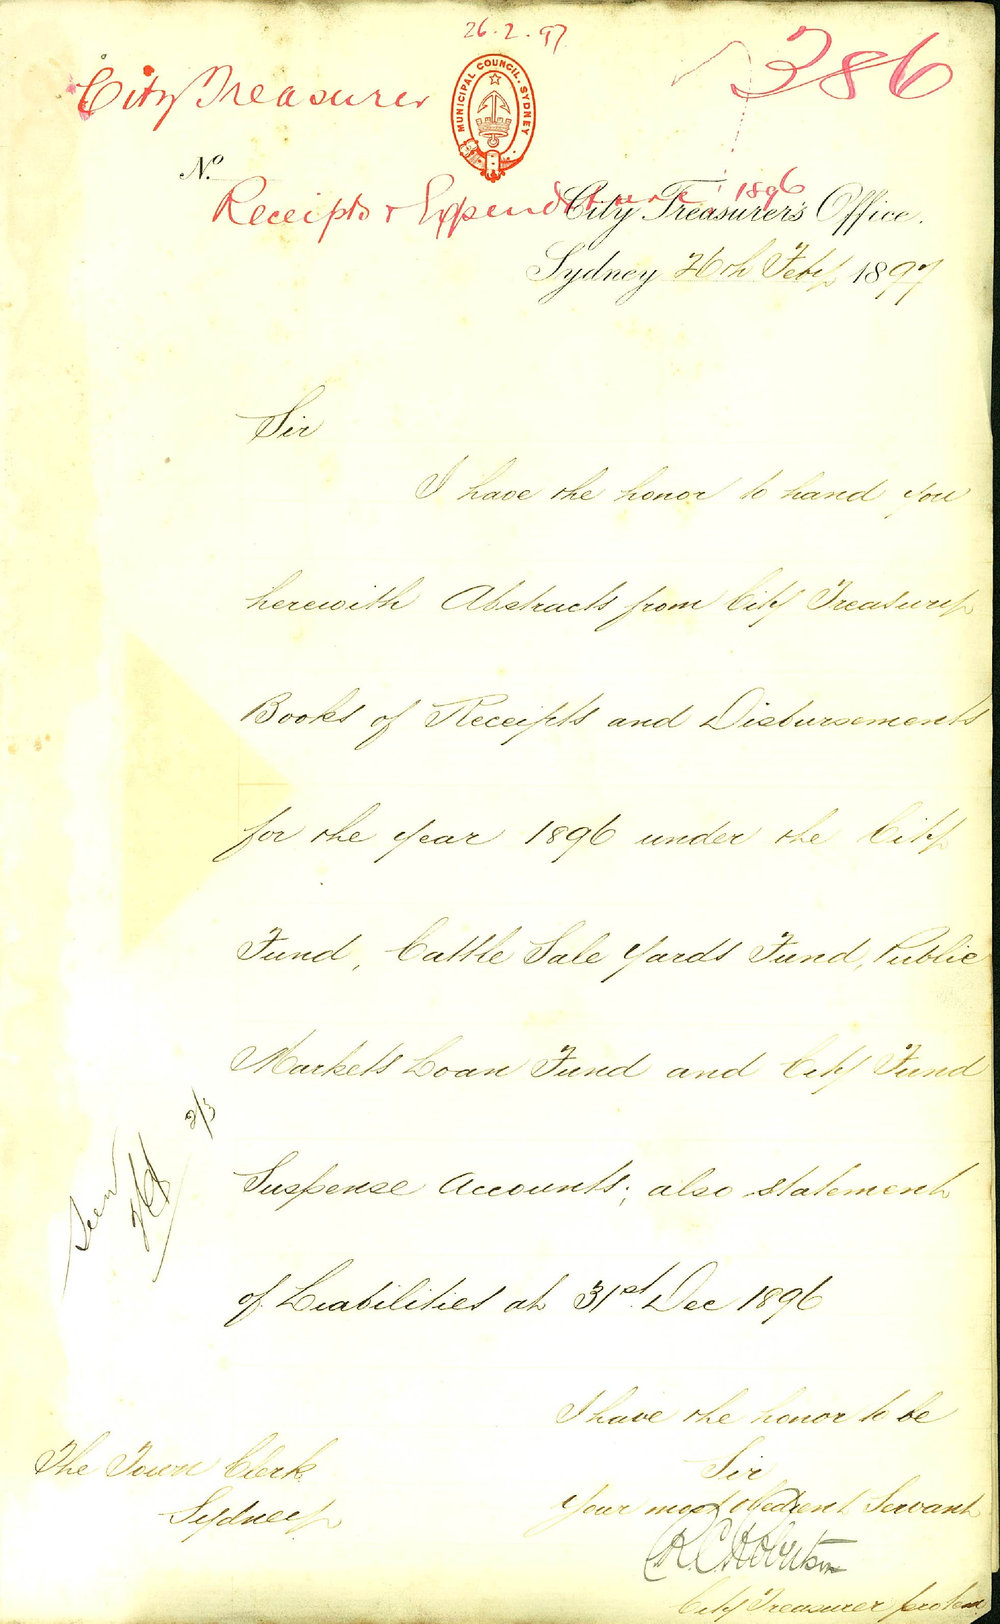 26.2.97
386
City Treasurer
MUNICIPAL COUNCIL. SYDNEY
No.
Receipts & Expenditure 1896
City Treasurer's Office.
Sydney 26th Feby 1897
Sir
I have the honor to hand you
herewith Abstracts from City Treasury
Books of Receipts and Disbursements
for the year 1896 under the City
Fund, Cattle Sale Yards Fund, Public
Markets Loan Fund and City Fund
Suspense Accounts; also statement
of Liabilities at 31st Dec 1896
Seen
2/3
I have the honor to be
Sir
Your most obedient Servant
Robertson
City Treasurer pro tem
The Town Clerk
Sydney